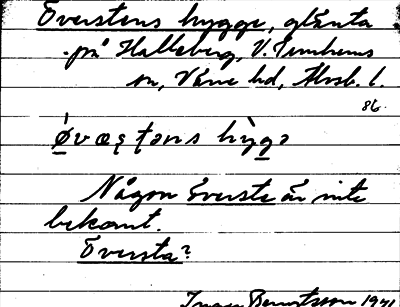 Överstens hygge, glänta
på Halleberg, V. Tunhems
sn, Väne hd, Älvsb. l.
86.
Någon överste är inte
bekant.
Översta?
Bengtsson